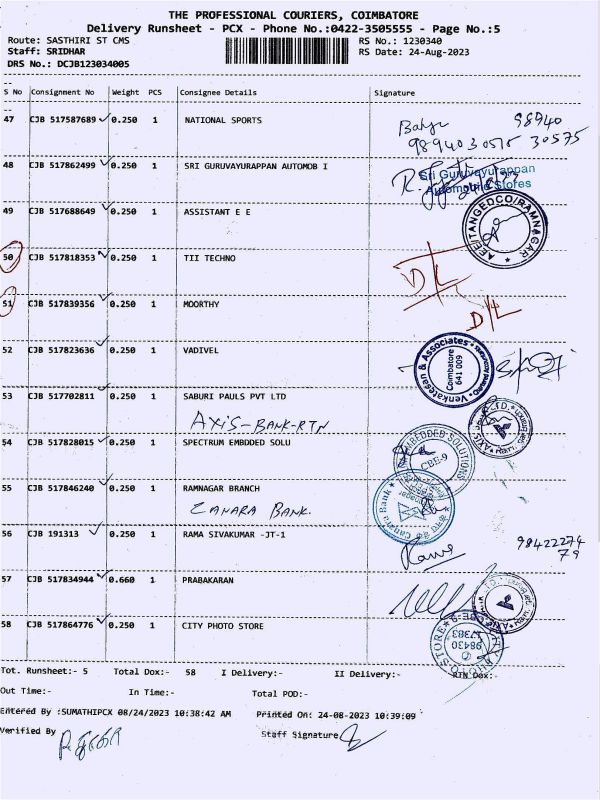 THE PROFESSIONAL COURIERS, COIMBATORE
Delivery Runsheet - PCX - Phone No.:0422-3505555 - Page No.:5
Route: SASTHIRI ST CMS RS No.: 1230340
Staff: SRIDHAR RS Date: 24-Aug-2023
DRS No.: DCJB123034005
S No Consignment No Weight PCS Consignee Details Signature
47 CJB 517587689 0.250 1 NATIONAL SPORTS 98940
98940 30575 30575
48 CJB 517862499 0.250 1 SRI GURUVAYURAPPAN AUTOMOB I
Sri Guruvayurappan
Automotive Stores
49 CJB 517688649 0.250 1 ASSISTANT E E
AEE/TANGEDCO/RAMNAGAR
50 CJB 517818353 0.250 1 TII TECHNO
D/L
51 CJB 517839356 0.250 1 MOORTHY
D/L
52 CJB 517823636 0.250 1 VADIVEL
Venkatesan & Associates
Coimbatore
641 009
53 CJB 517702811 0.250 1 SABURI PAULS PVT LTD
AXIS-BANK-RTN
54 CJB 517828015 0.250 1 SPECTRUM EMBDDED SOLU
EMBEDDED SOLUTIONS
CBE-9
55 CJB 517846240 0.250 1 RAMNAGAR BRANCH
CANARA BANK.
Canara Bank
56 CJB 191313 0.250 1 RAMA SIVAKUMAR -JT-1
98422274
79
57 CJB 517834944 0.660 1 PRABAKARAN
58 CJB 517864776 0.250 1 CITY PHOTO STORE
98430
17383
Tot. Runsheet:- 5 Total Dox:- 58 I Delivery:- II Delivery:- RTN Dox:-
Out Time:- In Time:- Total POD:-
Entered By :SUMATHIPCX 08/24/2023 10:38:42 AM Printed On: 24-08-2023 10:39:09
Verified By Staff Signature